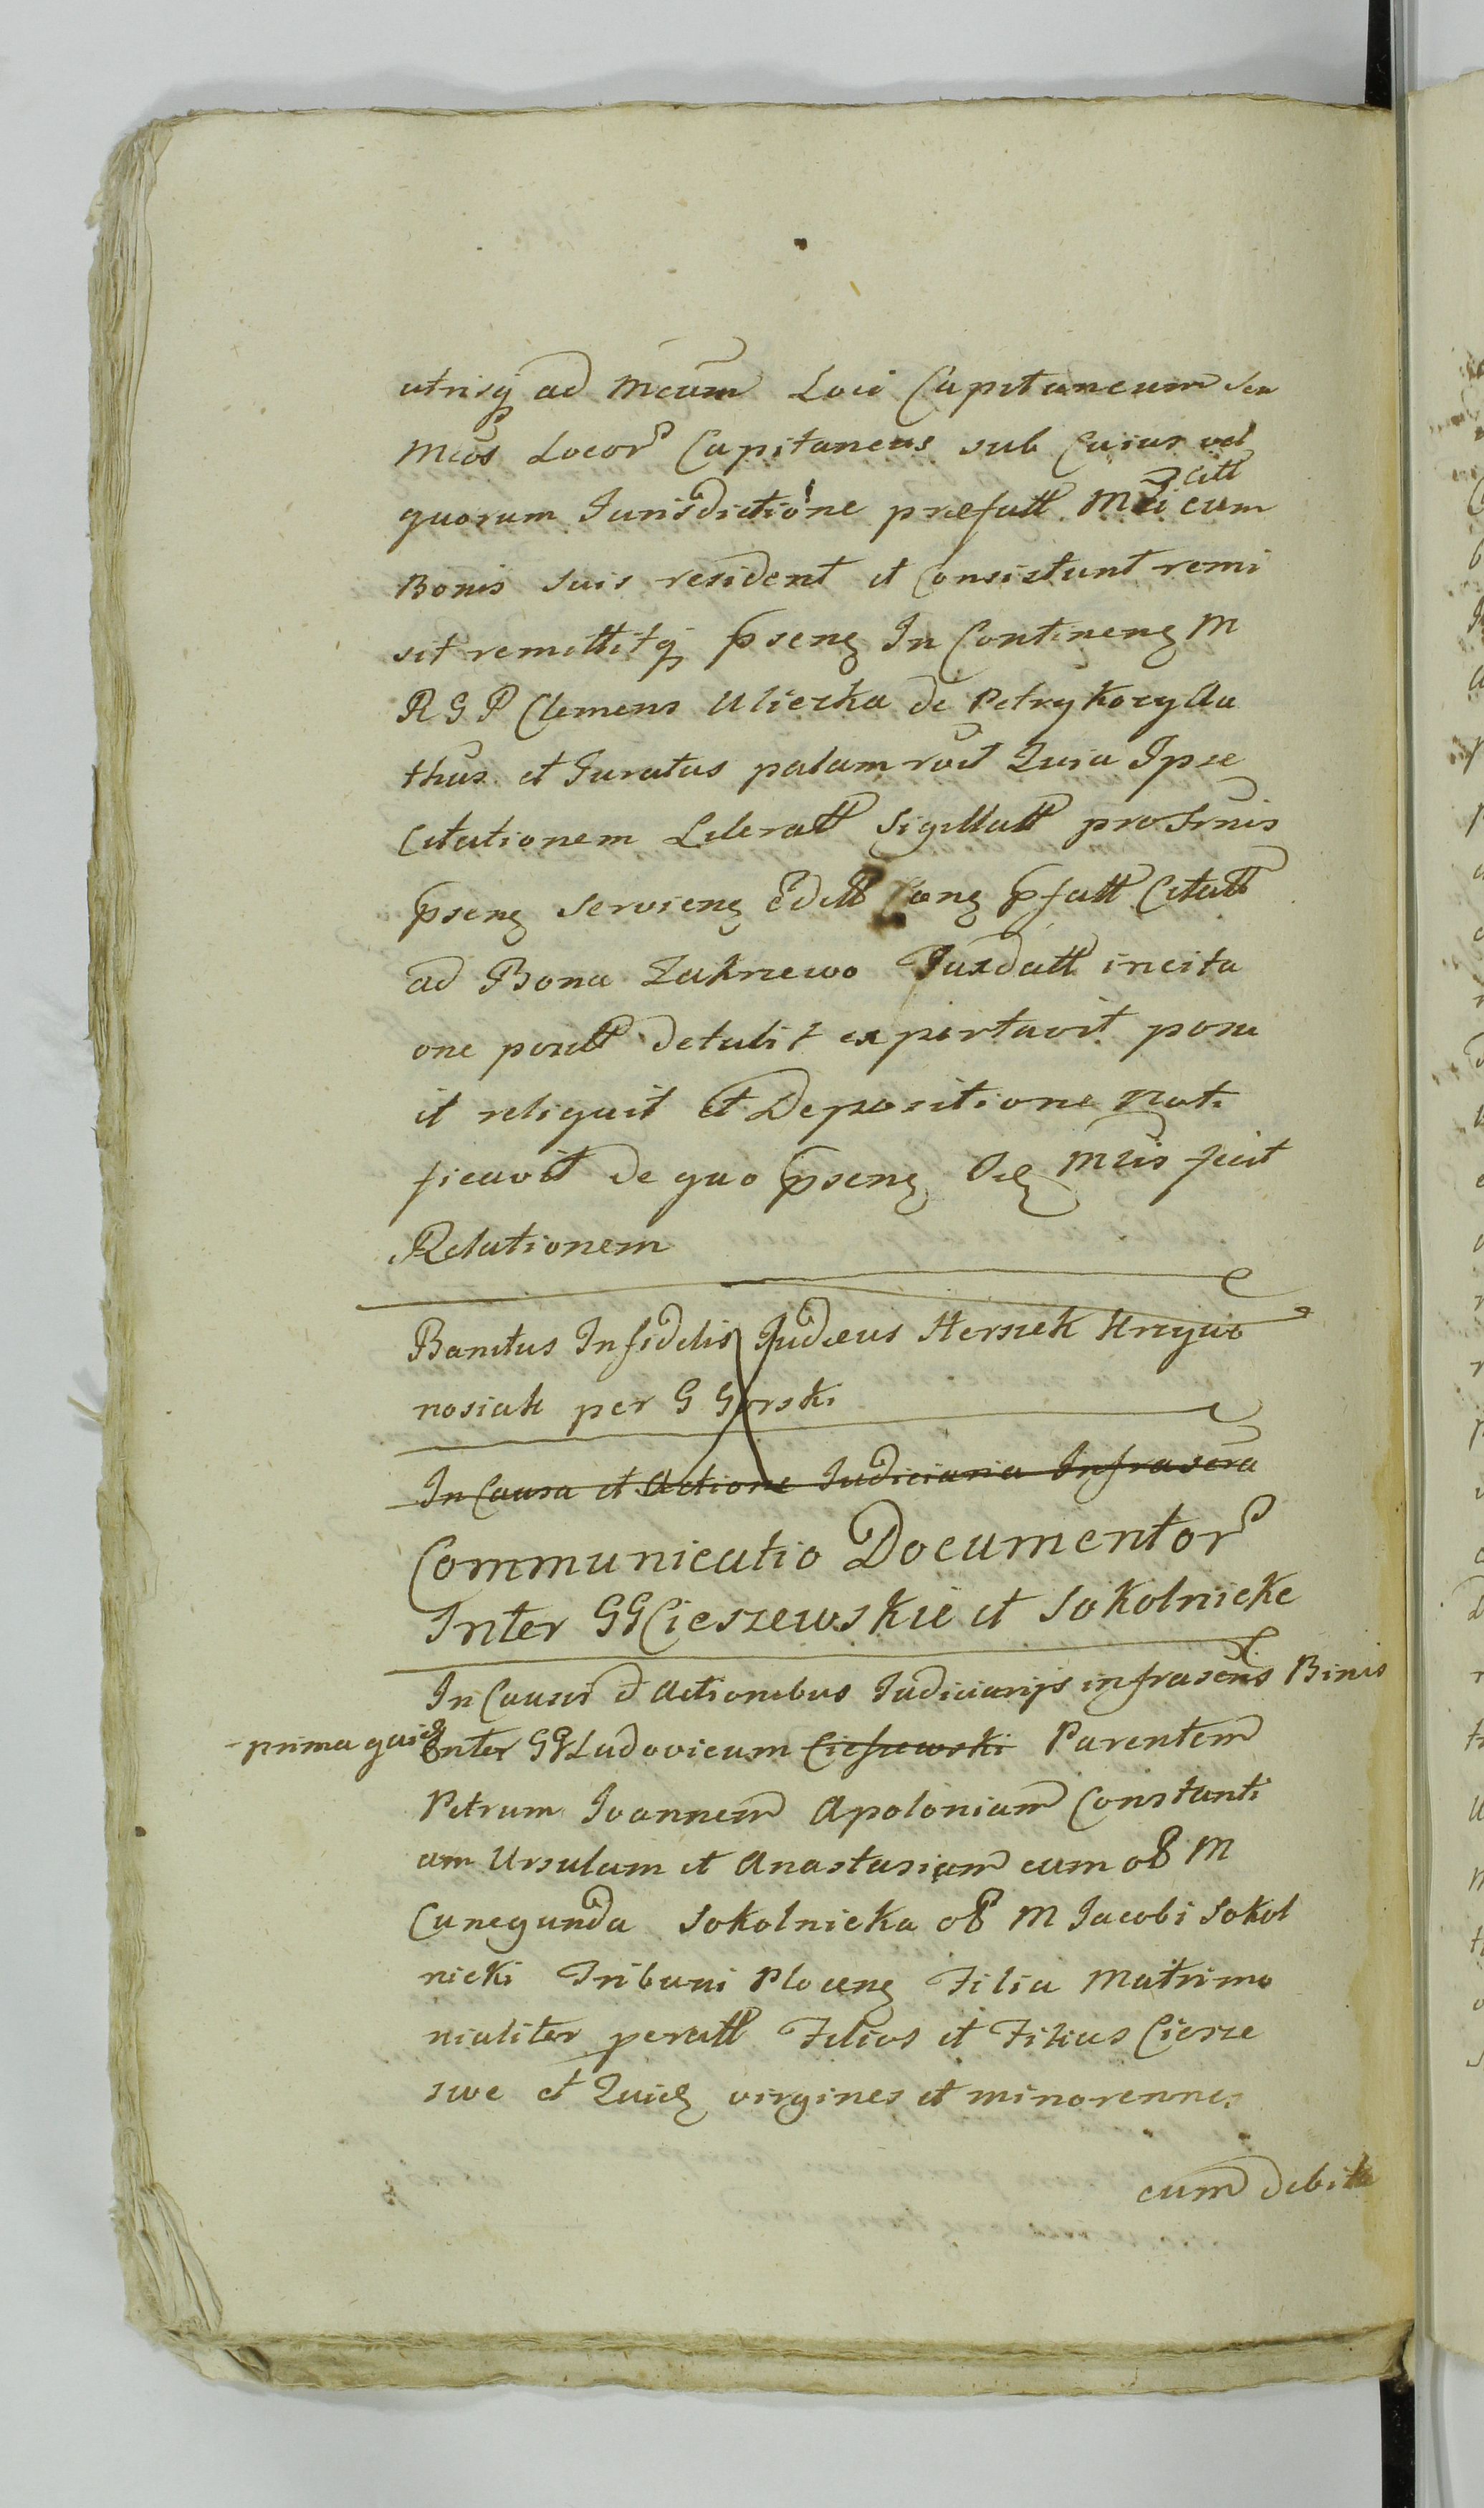 utrisq ad Mcum Loci Capitaneum seu
Mcos Locor Capitaneos sub Cuius vel
quorum Jurisdictione præfatt citt cum
Bonis suis resident et Consistunt remi
sit remittitq pseng In Conting M
R G P Clemens Uliczka de Petrykozy Au
thus et Juratus palam roit Quia Ipse
Citationem Literatt Sigillatt pro Trnis
pseng servieng Editt pfatt Citatt
ad Bona Zakrzewo Juxdatt incita
one positt detulit exportavit posu
it reliquit et Depositione noti
ficavit de quo pseng Off Mris fecit
Relationem
Banitus Infidelis Judæus Herszek Krzywo
nosiak per G Gorski
In Causa et Actione Judiciaria Infrascra
Communicatio Documentor
Inter GG Cieszewskie et Sokolnickie
In Causis et Actionibus Judiciarijs infrascris Binis
- prima quid Inter GG Ludovicum Cieszewski Parentem
Petrum Joannem Apoloniam Constanti
am Ursulam et Anastasiam cum ol M
Cunegunda Sokolnicka ol M Jacobi Sokol
nicki Tribuni Ploceng Filia Matrimo
nialiter peratt Filios et Filias Ciesze
swe et Quid virgines et minorennes
cum debita